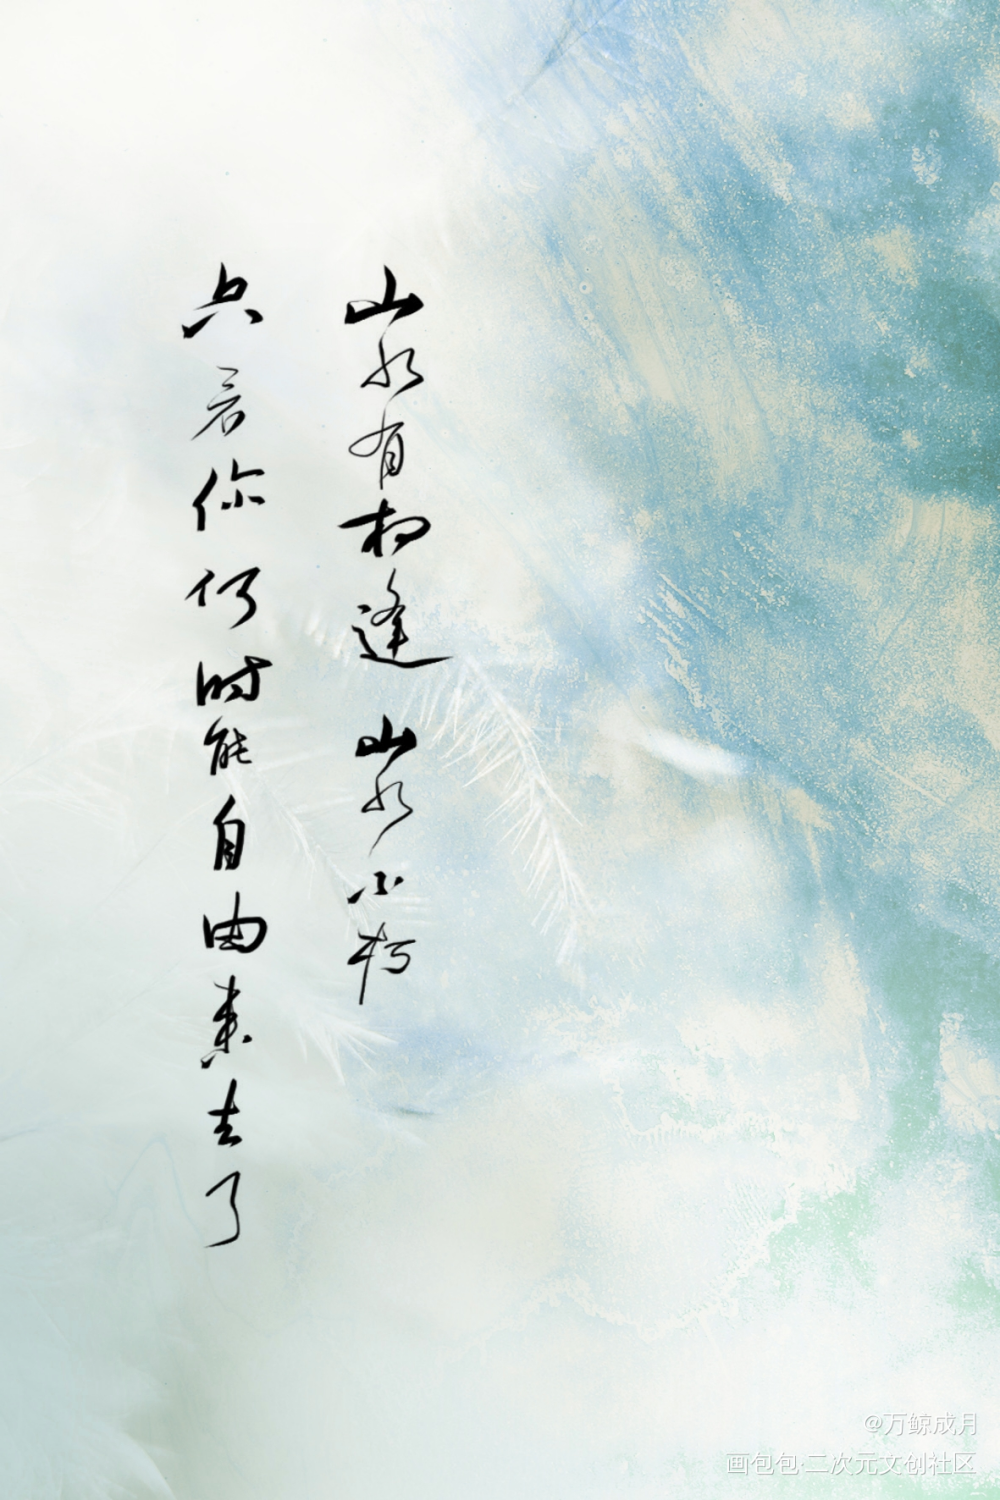 山水有相逢 山水小相
只看你何时能自由来去了
@万鲸成月
画包包·二次元文创社区